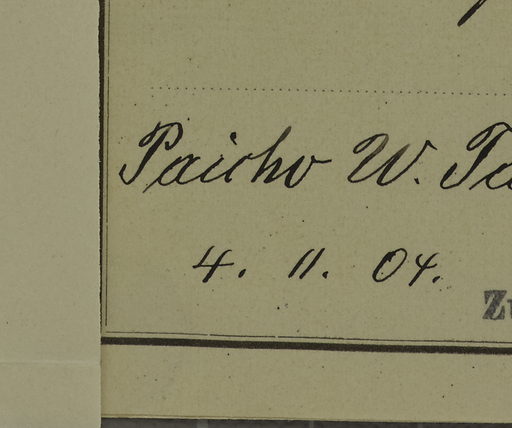 Paicho W. Ta
4. 11. 04.
Zu